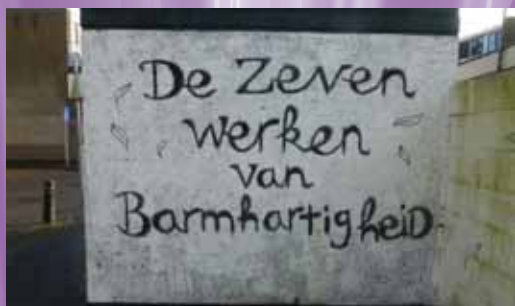 De Zeven
werken
van
Barmhartigheid